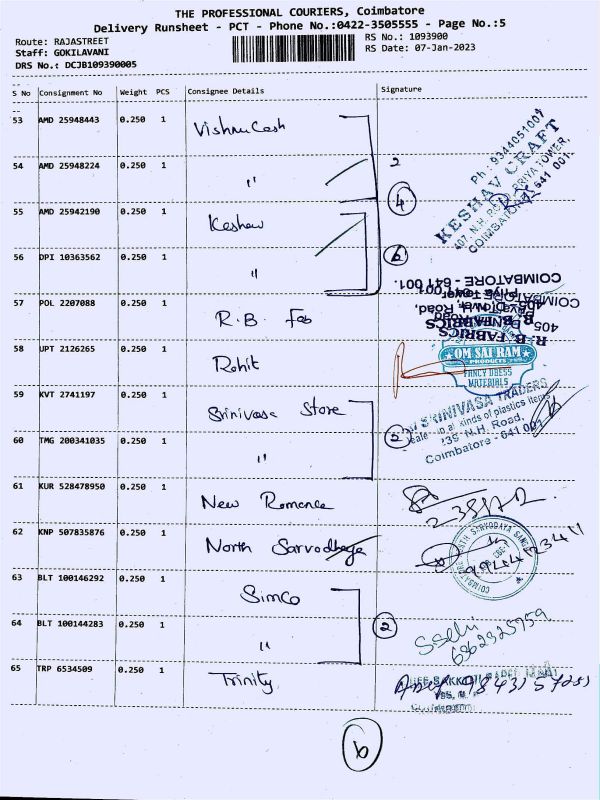 THE PROFESSIONAL COURIERS, Coimbatore
Delivery Runsheet - PCT - Phone No.:0422-3505555 - Page No.:5
Route: RAJASTREET
Staff: GOKILAVANI
DRS No.: DCJB109390005
RS No.: 1093900
RS Date: 07-Jan-2023
S No Consignment No Weight PCS Consignee Details Signature
53 AMD 25948443 0.250 1 Vishnu Cash
54 AMD 25948224 0.250 1 " 2
Ph : 9344051007
KESHAV CRAFT
COIMBATORE
641 001.
4
55 AMD 25942190 0.250 1 Keshav
56 DPI 10363562 0.250 1 " 6
COIMBATORE - 641 001.
57 POL 2207088 0.250 1 R.B. Fab
R. B. FABRICS
58 UPT 2126265 0.250 1 Rohit
OM SAI RAM
PRODUCTS
FANCY DRESS
MATERIALS
59 KVT 2741197 0.250 1 Srinivasa Store
SRINIVASA TRADERS
all kinds of plastics items
N.H. Road,
Coimbatore - 641 001
60 TMG 200341035 0.250 1 " 2
61 KUR 528478950 0.250 1 New Romance
62 KNP 507835876 0.250 1 North Sarvodhaya
SARVODAYA SANGH
63 BLT 100146292 0.250 1 Simco
64 BLT 100144283 0.250 1 " 2
65 TRP 6534509 0.250 1 Trinity
6